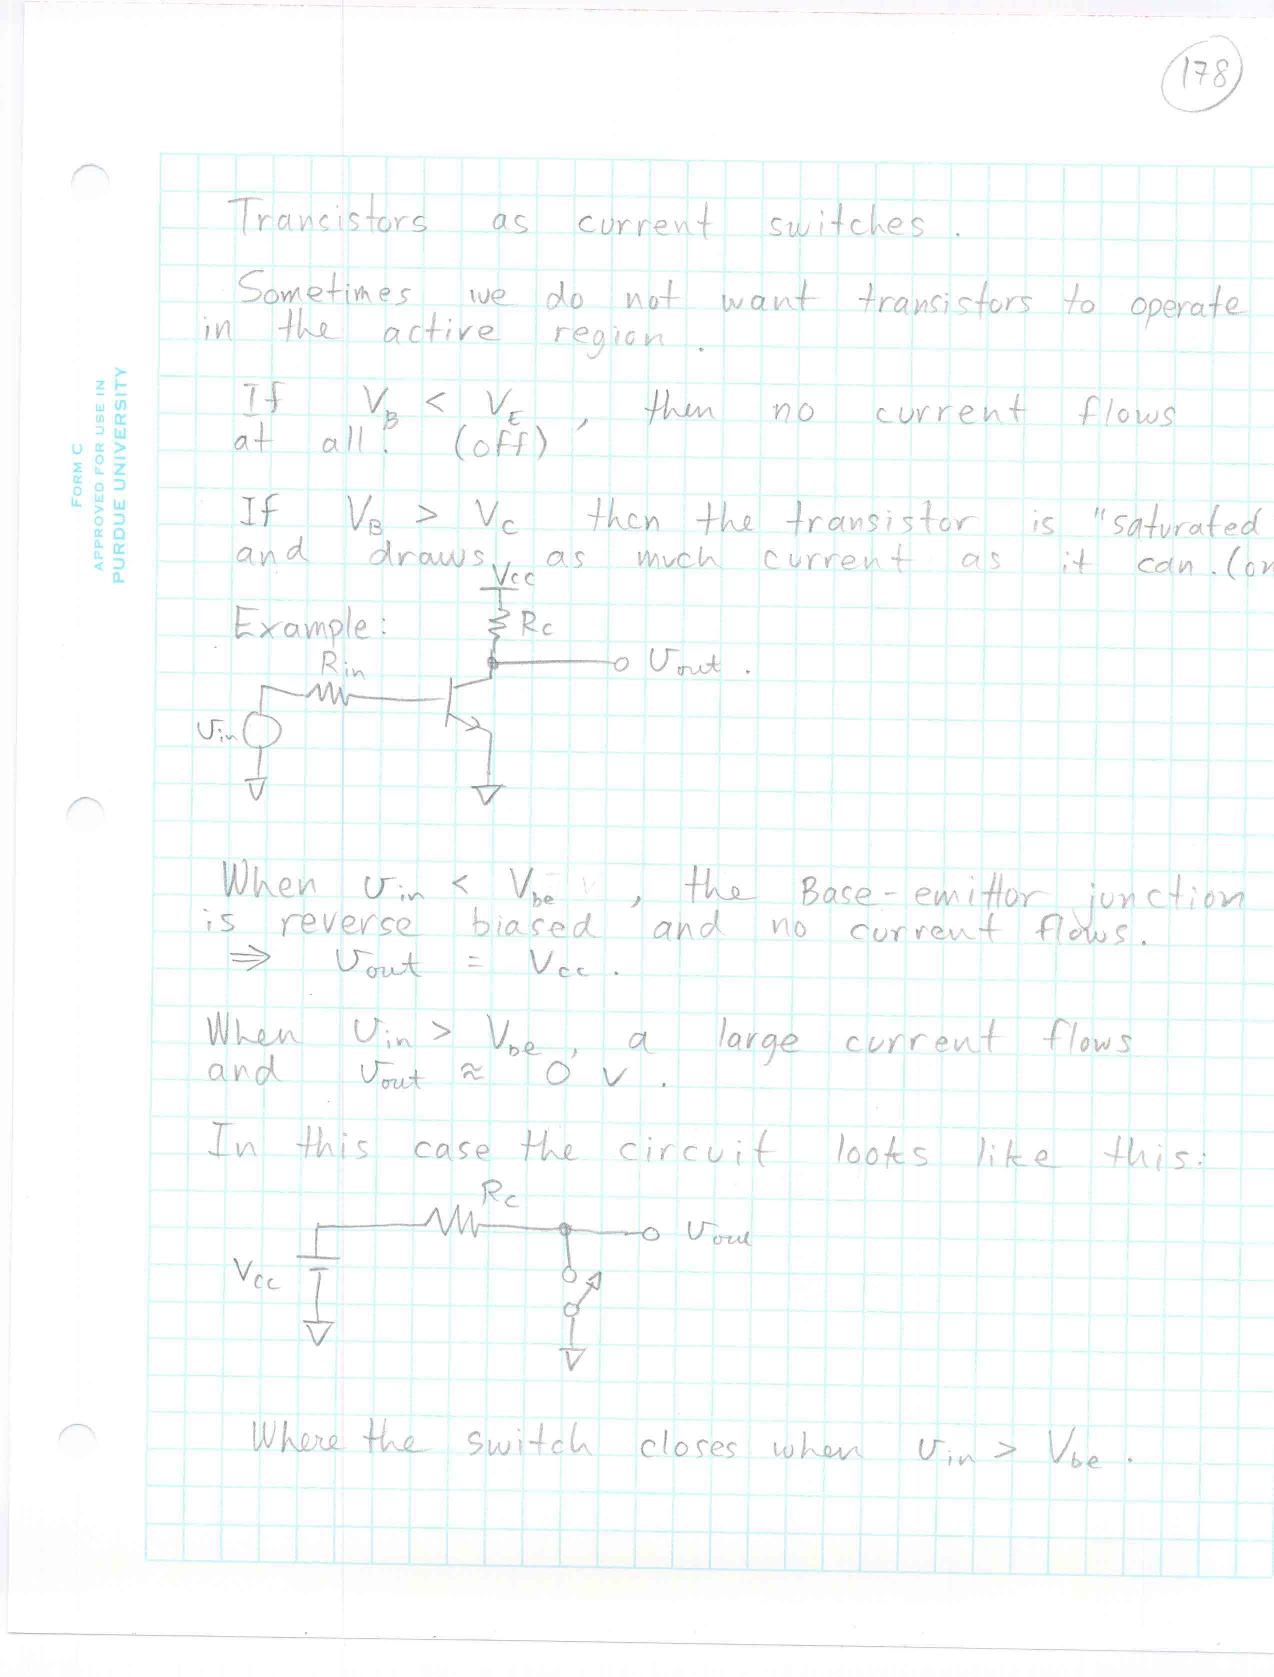 178
FORM C
APPROVED FOR USE IN
PURDUE UNIVERSITY
Transistors as current switches.
Sometimes we do not want transistors to operate
in the active region.
If V_B < V_E, then no current flows
at all. (off)
If V_B > V_C then the transistor is "saturated
and draws as much current as it can. (on
Vcc
Example:
Rc
Rin
Vout.
Vin
When Vin < Vbe, the Base-emittor junction
is reverse biased and no current flows.
⇒ Vout = Vcc.
When Vin > Vbe, a large current flows
and Vout ≈ 0 V.
In this case the circuit looks like this:
Rc
Vout
Vcc
Where the switch closes when Vin > Vbe.